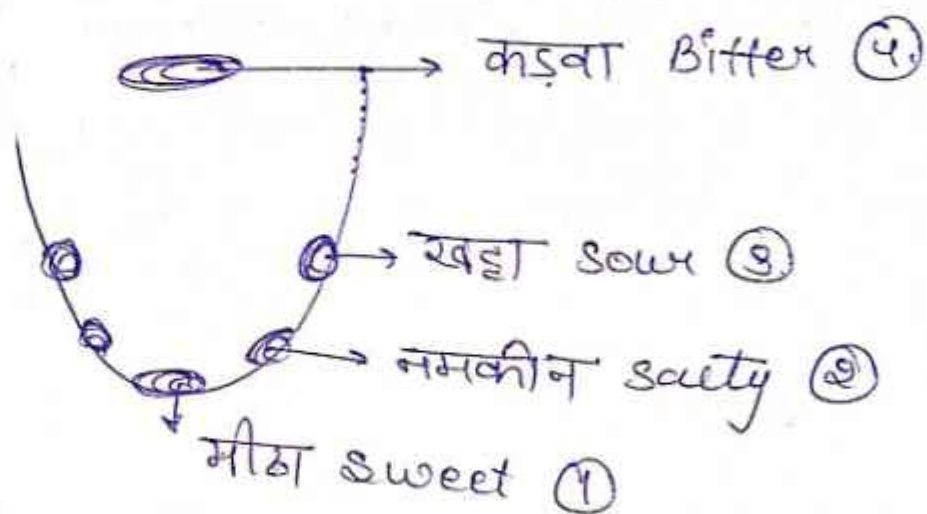 कड़वा Bitter ④.
खट्टा sour ③
नमकीन salty ②
मीठा sweet ①